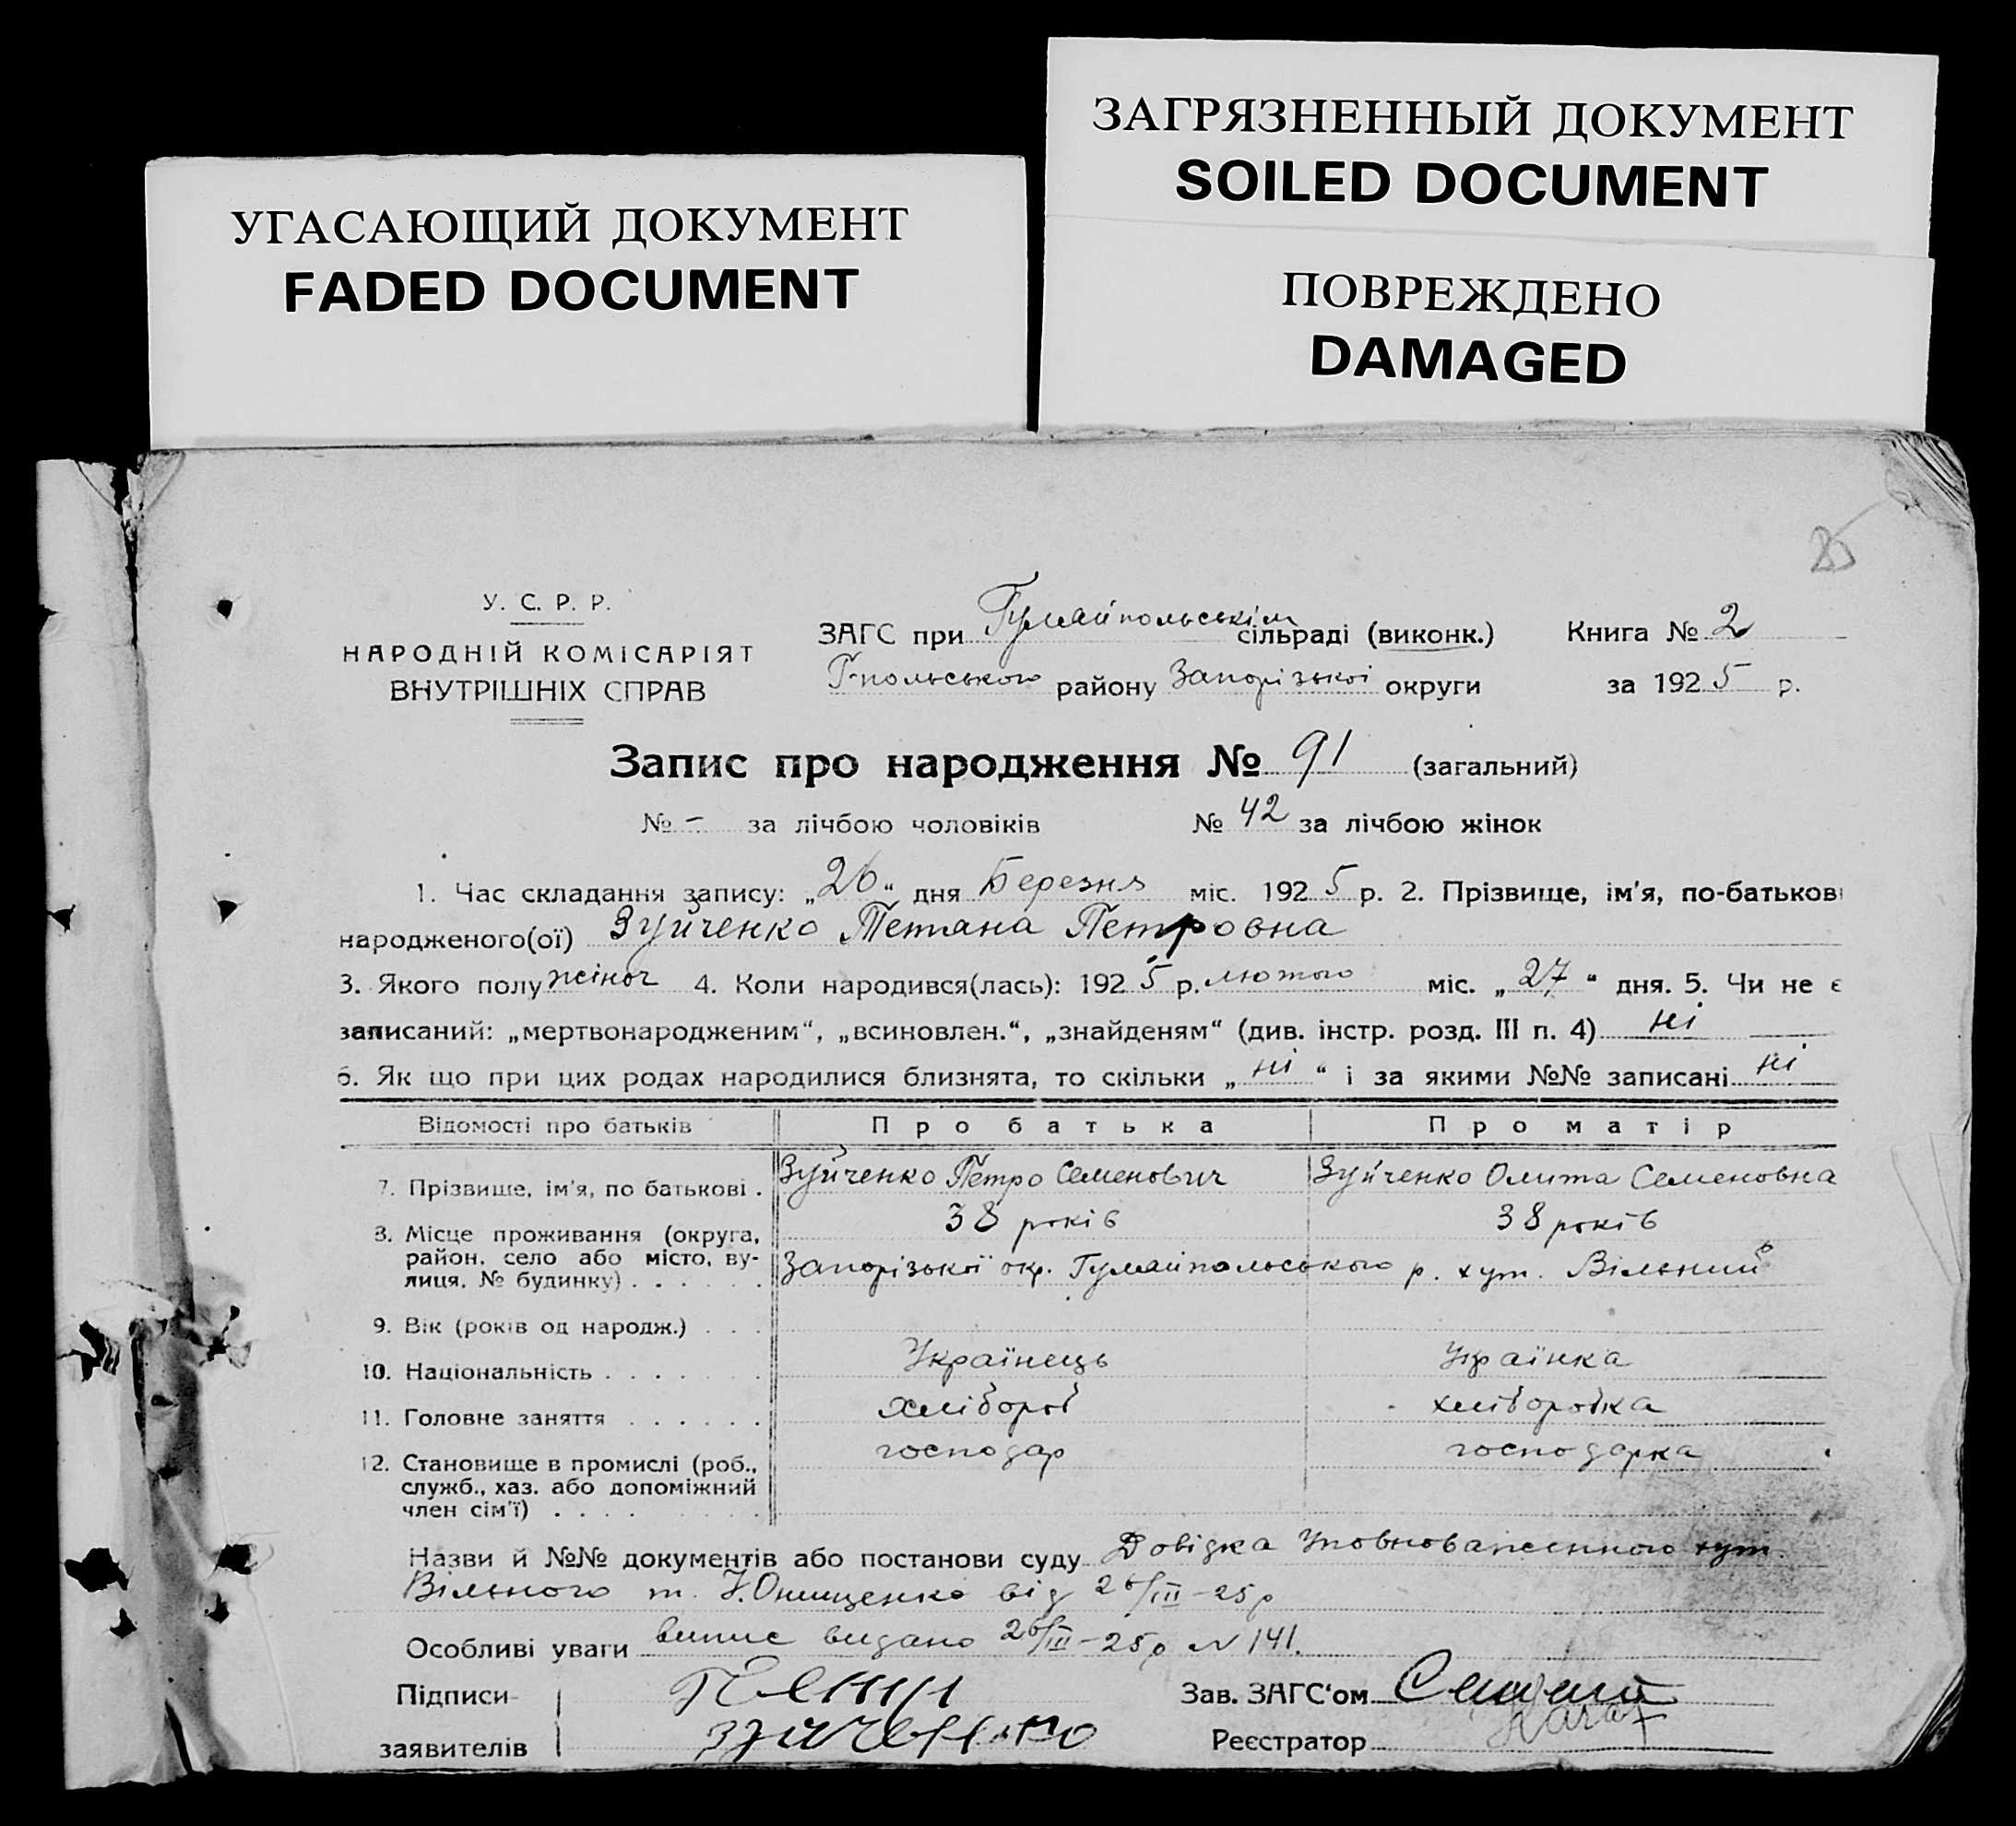 ЗАГРЯЗНЕННЫЙ ДОКУМЕНТ
SOILED DOCUMENT
УГАСАЮЩИЙ ДОКУМЕНТ
FADED DOCUMENT
ПОВРЕЖДЕНО
DAMAGED
У. С. Р. Р.
НАРОДНІЙ КОМІСАРІЯТ
ВНУТРІШНІХ СПРАВ
ЗАГС при Гуляйпольськім сільраді (виконк.)
Г-польського району Запорізької округи
Книга № 2
за 1925 р.
Запис про народження № 91 (загальний)
№ - за лічбою чоловіків № 42 за лічбою жінок
1. Час складання запису: „26“ дня Березня міс. 1925 р. 2. Прізвище, ім'я, по-батькові
народженого(ої) Зуйченко Тетяна Петровна
3. Якого полу жіноч 4. Коли народився(лась): 1925 р. лютого міс. „27“ дня. 5. Чи не є
записаний: „мертвонародженим“, „всиновлен.“, „знайденям“ (див. інстр. розд. III п. 4) ні
6. Як що при цих родах народилися близнята, то скільки „ні“ і за якими №№ записані ні
Відомості про батьків Про батька Про матір
7. Прізвище, ім'я, по батькові . Зуйченко Петро Семенович Зуйченко Олита Семеновна
38 років 38 років
8. Місце проживання (округа,
район, село або місто, ву-
лиця, № будинку) . . . . . . Запорізької окр. Гуляйпольського р. хут. Вільний
9. Вік (років од народж.) . . .
10. Національність . . . . . . . Українець Українка
11. Головне заняття . . . . . . хлібороб хлібороbка
12. Становище в промислі (роб., господар господарка
служб., хаз. або допоміжний
член сім'ї) . . . .
Назви й №№ документів або постанови суду Довідка Уповноваженного хут.
Вільного т. Онищенко від 26/III-25р
Особливі уваги випис видано 26/III-25р N 141.
Підписи
заявителів Зуйченко
Зав. ЗАГС‘ом
Реєстратор